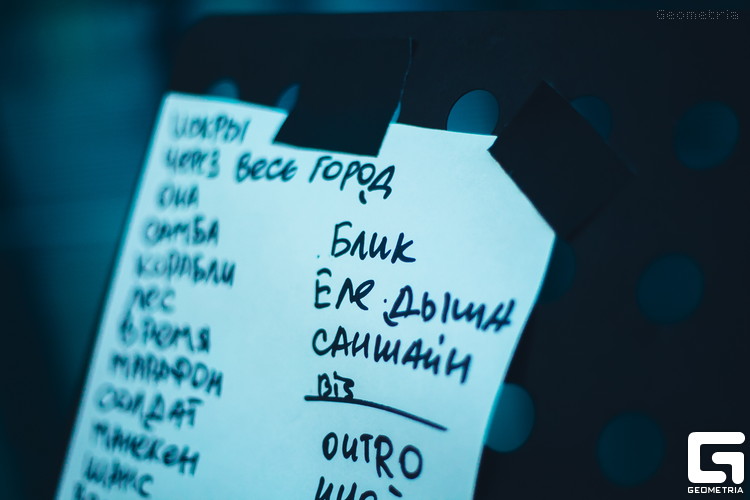 Geometria
ИСКРЫ
ЧЕРЕЗ ВЕСЬ ГОРОД
ОНА
САМБА
КОРАБЛИ
ЛЕС
ВРЕМЯ
МАРАФОН
СОЛДАТ
МАНЕКЕН
ШАНС
БЛИК
ЕЛЕ ДЫША
САНШАЙН
BIS
OUTRO
GEOMETRIA